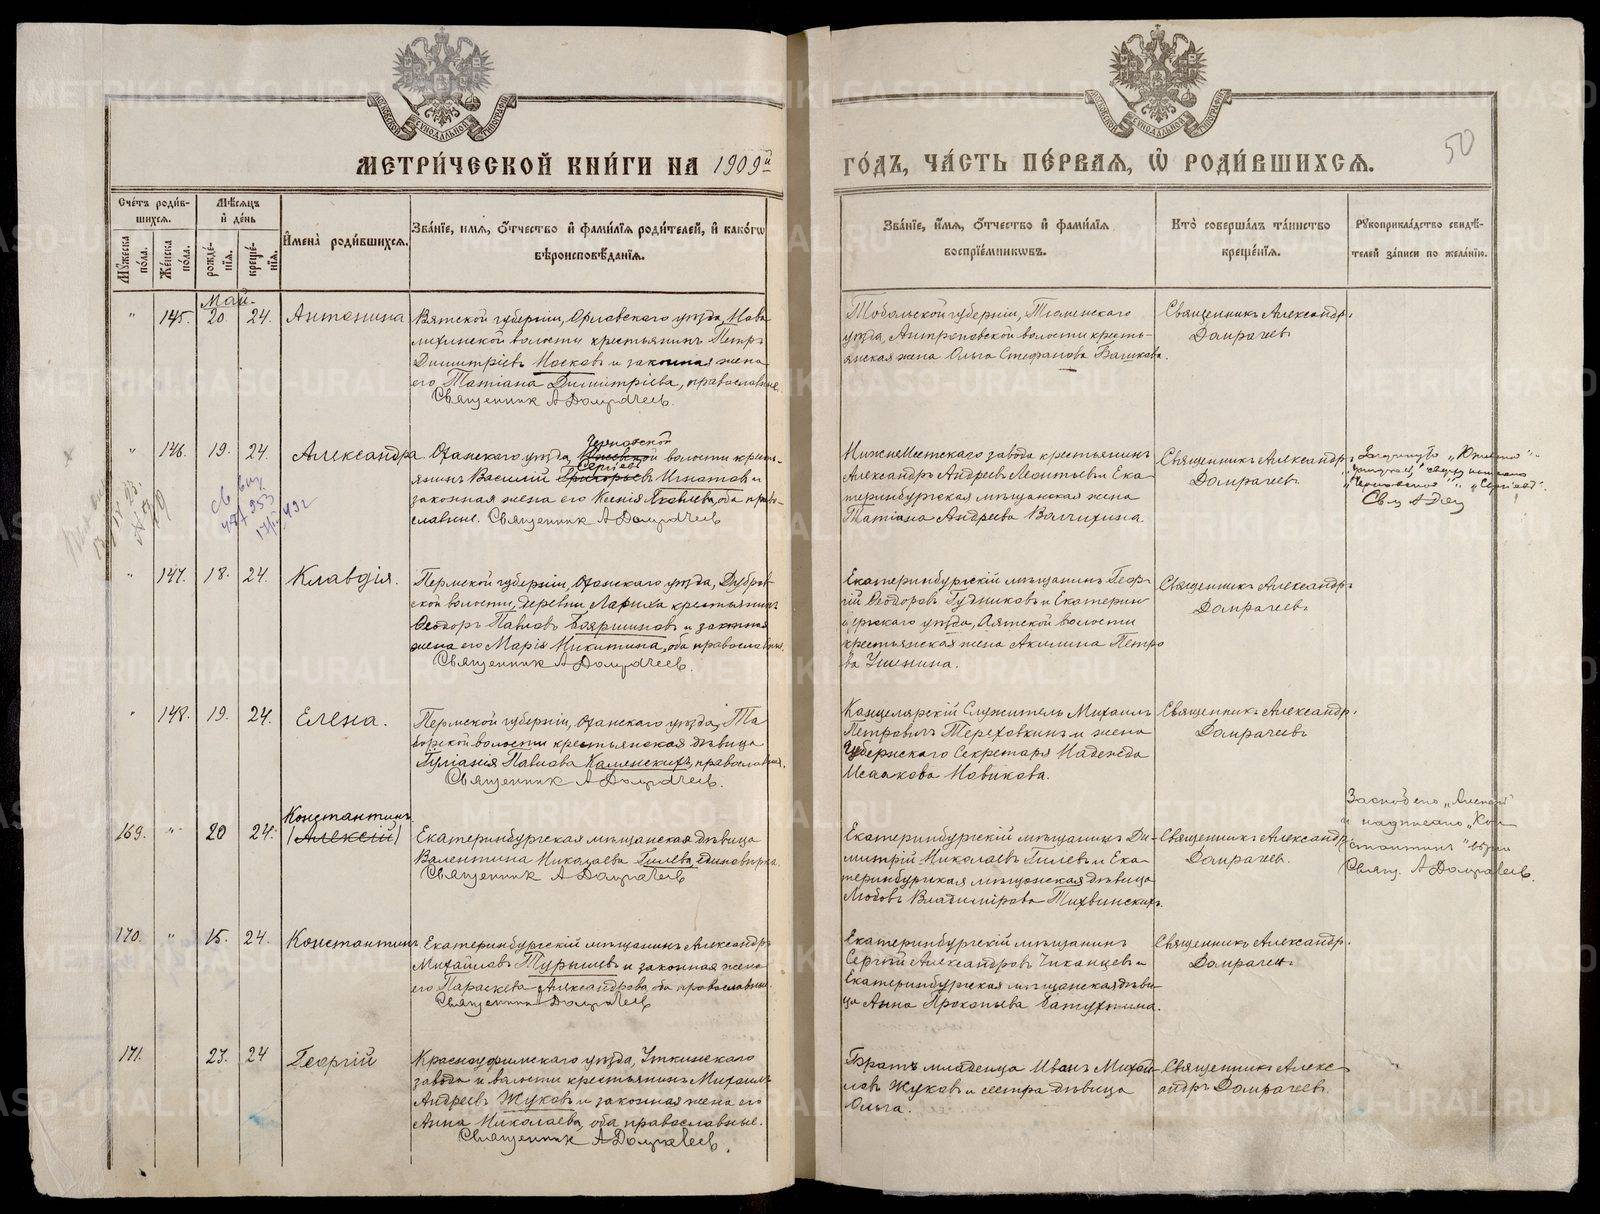 МЕТРИ́ЧЕСКОЙ КНИ́ГИ НА 1909й
ГО́ДЪ, ЧА́СТЬ ПЕ́РВАЯ, Ѡ РОДИ́ВШИХСѦ.
50
Сче́тъ роди́вшихся.
Мѣ́сяцъ и де́нь
Му́жеска по́ла.
Же́нска по́ла.
рожде́нія.
креще́нія.
Имена̀ роди́вшихся.
Зва́ніе, имя, о́тчество и фами́лія роди́телей, и како́гѡ
вѣроисповѣ́данія.
Зва́ніе, и́мя, о́тчество и фами́лія
воспріе́мниковъ.
Кто̀ соверша́лъ та́инство
креще́нія.
Рукоприкла́дство свидѣ́-
телей за́писи по жела́нію.
Май.
" 145. 20. 24. Антонина
Вятской губерніи, Орловскаго уѣзда,
волости крестьянинъ Петръ
Димитріевъ Москов и законная жена
его Татіана Димитріева, православные.
Священник А Домрачеев.
Тобольской губерніи, Тюменскаго
уѣзда, Антроповской волости кресть-
янская жена Ольга Стефанова
Священникъ Александръ
Домрачеевъ
" 146. 19. 24. Александра
Оханскаго уѣзда, волости кресть-
янинъ Василій Сергіевъ Григорьевъ Игнатов и
законная жена его Ксенія Яковлева, оба право-
славные. Священник А Домрачеев
завода крестьянинъ
Александръ Андреевъ Леонтьевъ и Ека-
теринбургская мѣщанская жена
Татіана Андреева
Священникъ Александръ
Домрачеевъ.
" 147. 18. 24. Клавдія.
Пермской губерніи, Оханскаго уѣзда, Дубров-
ской волости, деревни крестьянинъ
Ѳеодоръ Павловъ Бояршиновъ и законная
жена его Марія Никитина, оба православные.
Священник А Домрачеев.
Екатеринбургскій мѣщанинъ Геор-
гій Ѳеодоровъ Гудниковъ и Екатерин-
бургскаго уѣзда, Аятской волости
крестьянская жена Акилина Петро-
ва
Священникъ Александръ
Домрачеевъ
" 148. 19. 24. Елена.
Пермской губерніи, Оханскаго уѣзда, Та-
борской волости крестьянская дѣвица
Іуліанія Павлова Каменскихъ, православная.
Священник А Домрачеев.
Канцелярскій Служитель Михаилъ
Петровичъ Тереховкинъ и жена
Губернскаго Секретаря Надежда
Исаакова Новикова.
Священникъ Александръ
Домрачеевъ
169. " 20 24. Константинъ
(Алексій)
Екатеринбургская мѣщанская дѣвица
Валентина Николаева Гилева, единовѣрка.
Священник А Домрачеев
Екатеринбургскій мѣщанинъ Ди-
митрій Николаевъ Гилевъ и Ека-
теринбургская мѣщанская дѣвица
Любовь Владимірова Тихвинскихъ.
Священникъ Александръ
Домрачеев.
Зачеркнуто „Алексій"
и надписано „Кон-
стантинъ" вѣрно
Свящ. А Домрачеев.
170. " 15. 24. Константинъ.
Екатеринбургскій мѣщанинъ Александръ
Михайловъ Турышевъ и законная жена
его Параскева Александрова, оба православные.
Священник А Домрачеев
Екатеринбургскій мѣщанинъ
Сергій Александровъ Чиканцевъ и
Екатеринбургская мѣщанская дѣви-
ца Анна Прокопьева
Священникъ Александръ
Домрачеевъ
171. 23. 24 Георгій
Красноуфимскаго уѣзда, Уткинскаго
завода и волости крестьянинъ Михаилъ
Андреевъ Жуковъ и законная жена его
Анна Николаева, оба православные.
Священник А Домрачеев.
Братъ младенца Иванъ Михай-
ловъ Жуковъ и сестра дѣвица
Ольга.
Священникъ Алекс-
андръ Домрачеевъ
METRIKI.GASO-URAL.RU